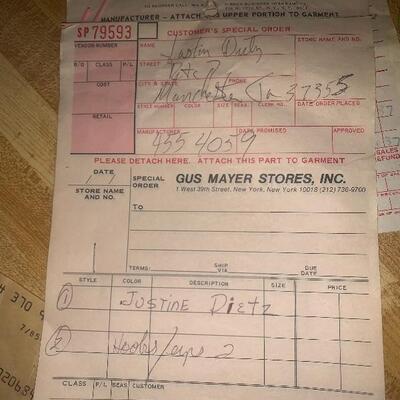 MANUFACTURER - ATTACH UPPER PORTION TO GARMENT
SP 79593
CUSTOMER'S SPECIAL ORDER
VENDOR NUMBER
NAME
STORE NAME AND NO.
Justin Dietz
STREET
R/O CLASS P/L
CITY PHONE
Manchester Tn 37355
COST
STYLE NUMBER COLOR SIZE SEAS. CLERK NO. DATE ORDER PLACED
RETAIL
MANUFACTURER DATE PROMISED APPROVED
455 4059
PLEASE DETACH HERE. ATTACH THIS PART TO GARMENT
DATE
SPECIAL ORDER
GUS MAYER STORES, INC.
1 West 39th Street, New York, New York 10018 (212) 736-9700
STORE NAME AND NO.
TO
TERMS: SHIP VIA DUE DATE
STYLE COLOR DESCRIPTION SIZE PRICE
1 JUSTINE Dietz
2 Hoobs/caps 2
CLASS P/L SEAS CUSTOMER
SALES
REFUND
370
7/85
020634